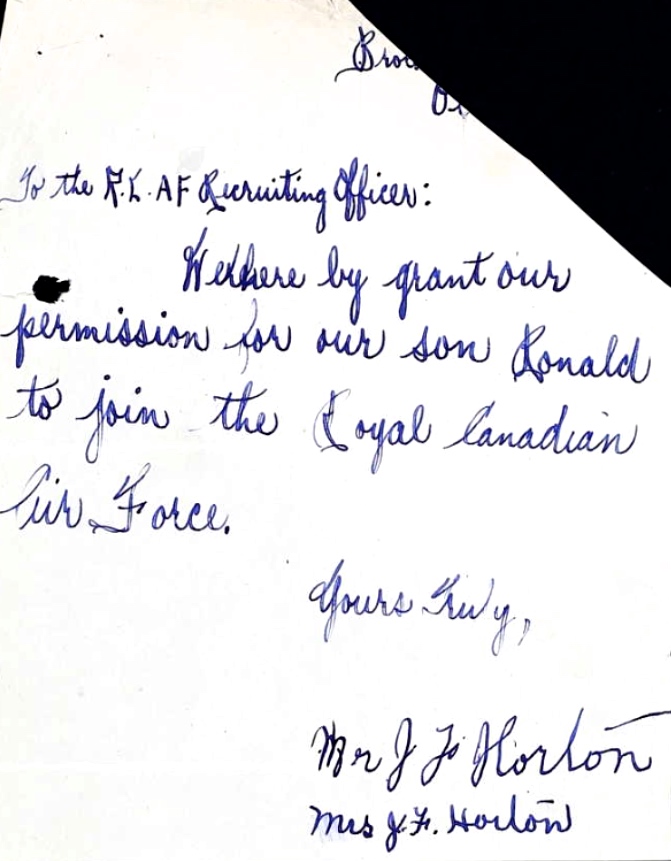 To the R.C.AF Recruiting Officer:
We here by grant our
permission for our son Ronald
to join the Royal Canadian
Air Force.
Yours Truly,
Mr J F Horton
Mrs J.F. Horton